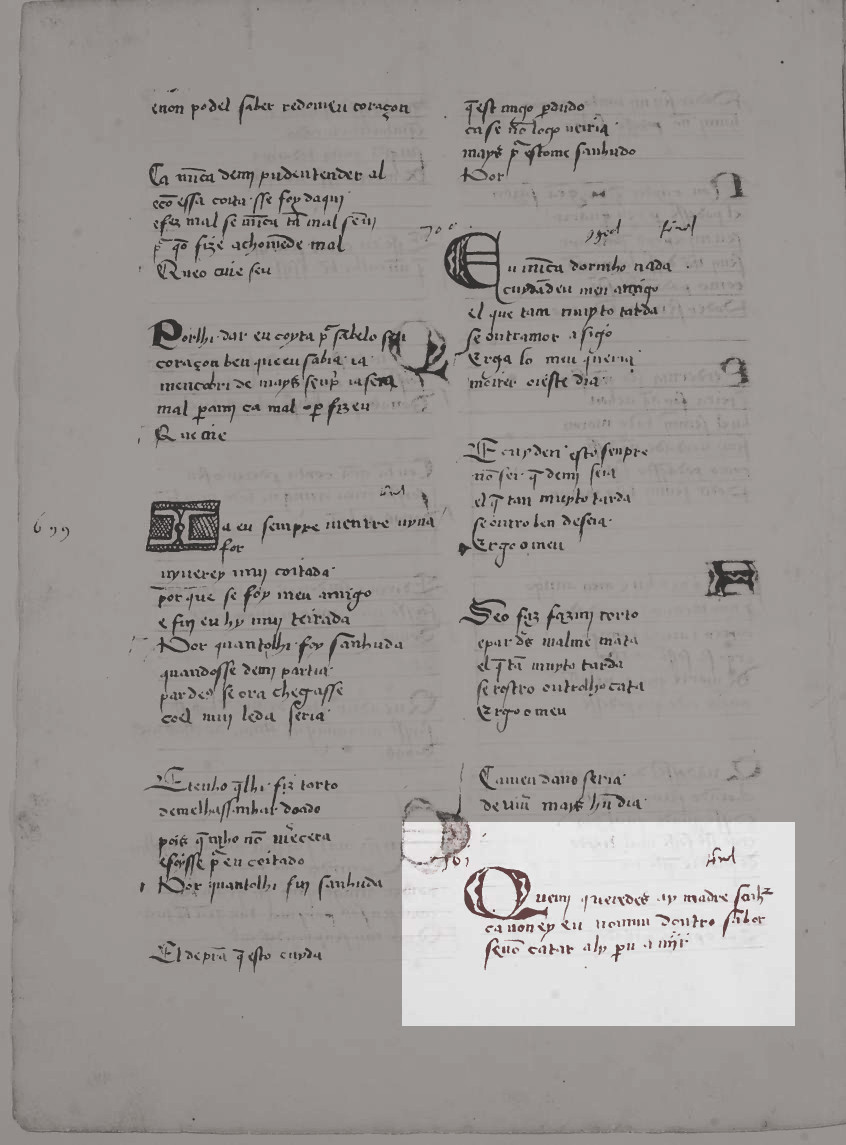 enon podel saber redomeu coraçon
Ca nūca demi pudentender al
ecō essa coita sse foy daqui
efez mal se nūca tā mal sēui
Queo cuie seu
Porlhi dar eu coyta pʳ sabelo
coraçon ben que eu sabia ia
mencobri de mays senpʳ ia sera
mal ꝑami ca mal o ꝑ fiz eu
Que cuie
699
final
Ia eu sempre mentre uyua
for
uyuerey muj coitada
por que se foy meu amigo
e fuy eu hy muj ceirada
Por quantolhi foy sanhuda
quandosse demi partia
par deꝯ se ora chegasse
coel muj leda seria
E tenho q̄lhi fiz torto
demelhassanhar doado
pois q̄ mho nō m̄ecera
efoysse pʳ en coitado
Por quantolhi fuy sanhuda
El de prā q̄ esto cuyda
q̄est migo ꝑdudo
ca se nō logo ueiria
mays pʳ estome sanhudo
Por
700
final
Eu nūca dormho nada
cuydādeu meu amigo
el que tam muyto tarda
se outramor a sigo
Ergo lo meu q̄ueria
moirer oieste dia
E cuyden esto senpre
nō sei q̄ demi seia
el q̄ tan muyto tarda
se outro ben deseia
Ergo o meu
Seo faz fazmi torto
epar ds̄ malme mata
el q̄ tā muyto tarda
se rostro outrolho cata
Ergo o meu
Ca meu dano seria
de uiuʳ mays hūn dia
701
final
Quem queredes ay madre
ca non ey eu nomūn doutro sabor
senō catar aly